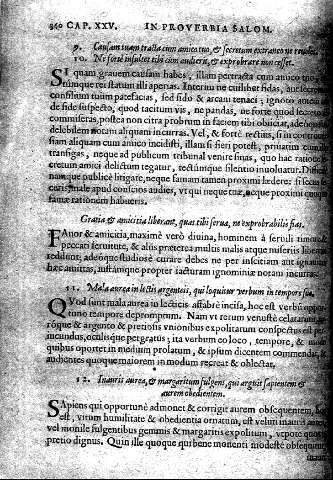 460 CAP. XXV. IN PROVERBIA SALOM.
9. Causam tuam tracta cum amico tuo, & secretum extraneo ne reueles.
10. Ne fortè insultet tibi cum audierit, & exprobrare non cesset.
SI quam grauem causam habes, illam pertracta cum amico tuo,
tumque rei statum illi apenas. Interim ne cuilibet fidas, aut secreti
consilium tuum patefacias, sed fido & arcani tenaci; ignoto autem
de fide suspecto, quod tacitum vis, ne pandas, ne fortè quod secretò
commiseras, postea non citra probrum in faciem tibi obiiciat, adeóque
delebilem notam aliquam incurras. Vel, & fortè rectiùs, si in controuersiam
aliquam cum amico incidisti, illam si fieri potest, priuatim cum
transigas, neque ad publicum tribunal venire sinas, quo hac ratione
cretum amici delictum tegatur, rectiúsque silentio inuoluatur.
que publicè litigare, neque famam tamen proximi lædere: si secus
curis, male apud conscios audies, vt qui neque tuæ, neque proximi
famæ rationem habueris.
Gratia & amicitia liberant, quas tibi serua, ne exprobrabilis fias.
FAuor & amicitia, maximè verò diuina, hominem à seruili timore
peccati seruitute, & aliis prætereà multis malis atque miseriis liberum
reddunt; adeóque studiosè curare debes ne per inscitiam aut ignauiam
hæc amittas, iustámque propter iacturam ignominiæ notam incurras.
11. Mala aurea in lectis argenteis, qui loquitur verbum in tempore suo.
QVod sunt mala aurea in lecticis affabrè incisa, hoc est verbū opportuno
tempore depromptum. Nam vt rerum venustè cælatarum,
róque & argento & pretiosis vnionibus expolitarum conspectus est
iucundus, oculísque pergratus; ita verbum eo loco, tempore, & modo
quibus oportet in medium prolatum, & ipsum dicentem commendat, &
audientes quoque maiorem in modum recreat & oblectat.
12. Inauris aurea, & margaritum fulgens, qui arguit sapientem &
aurem obedientem.
SApiens qui opportunè admonet & corrigit aurem obsequentem,
est, virum humilitate & obedientia ornatum, est veluti inauris aurea
vel monile fulgentibus gemmis & margaritis expolitum, vtpote quouis
pretio dignus. Quin ille quoque qui bene monenti modestè obsequitur,